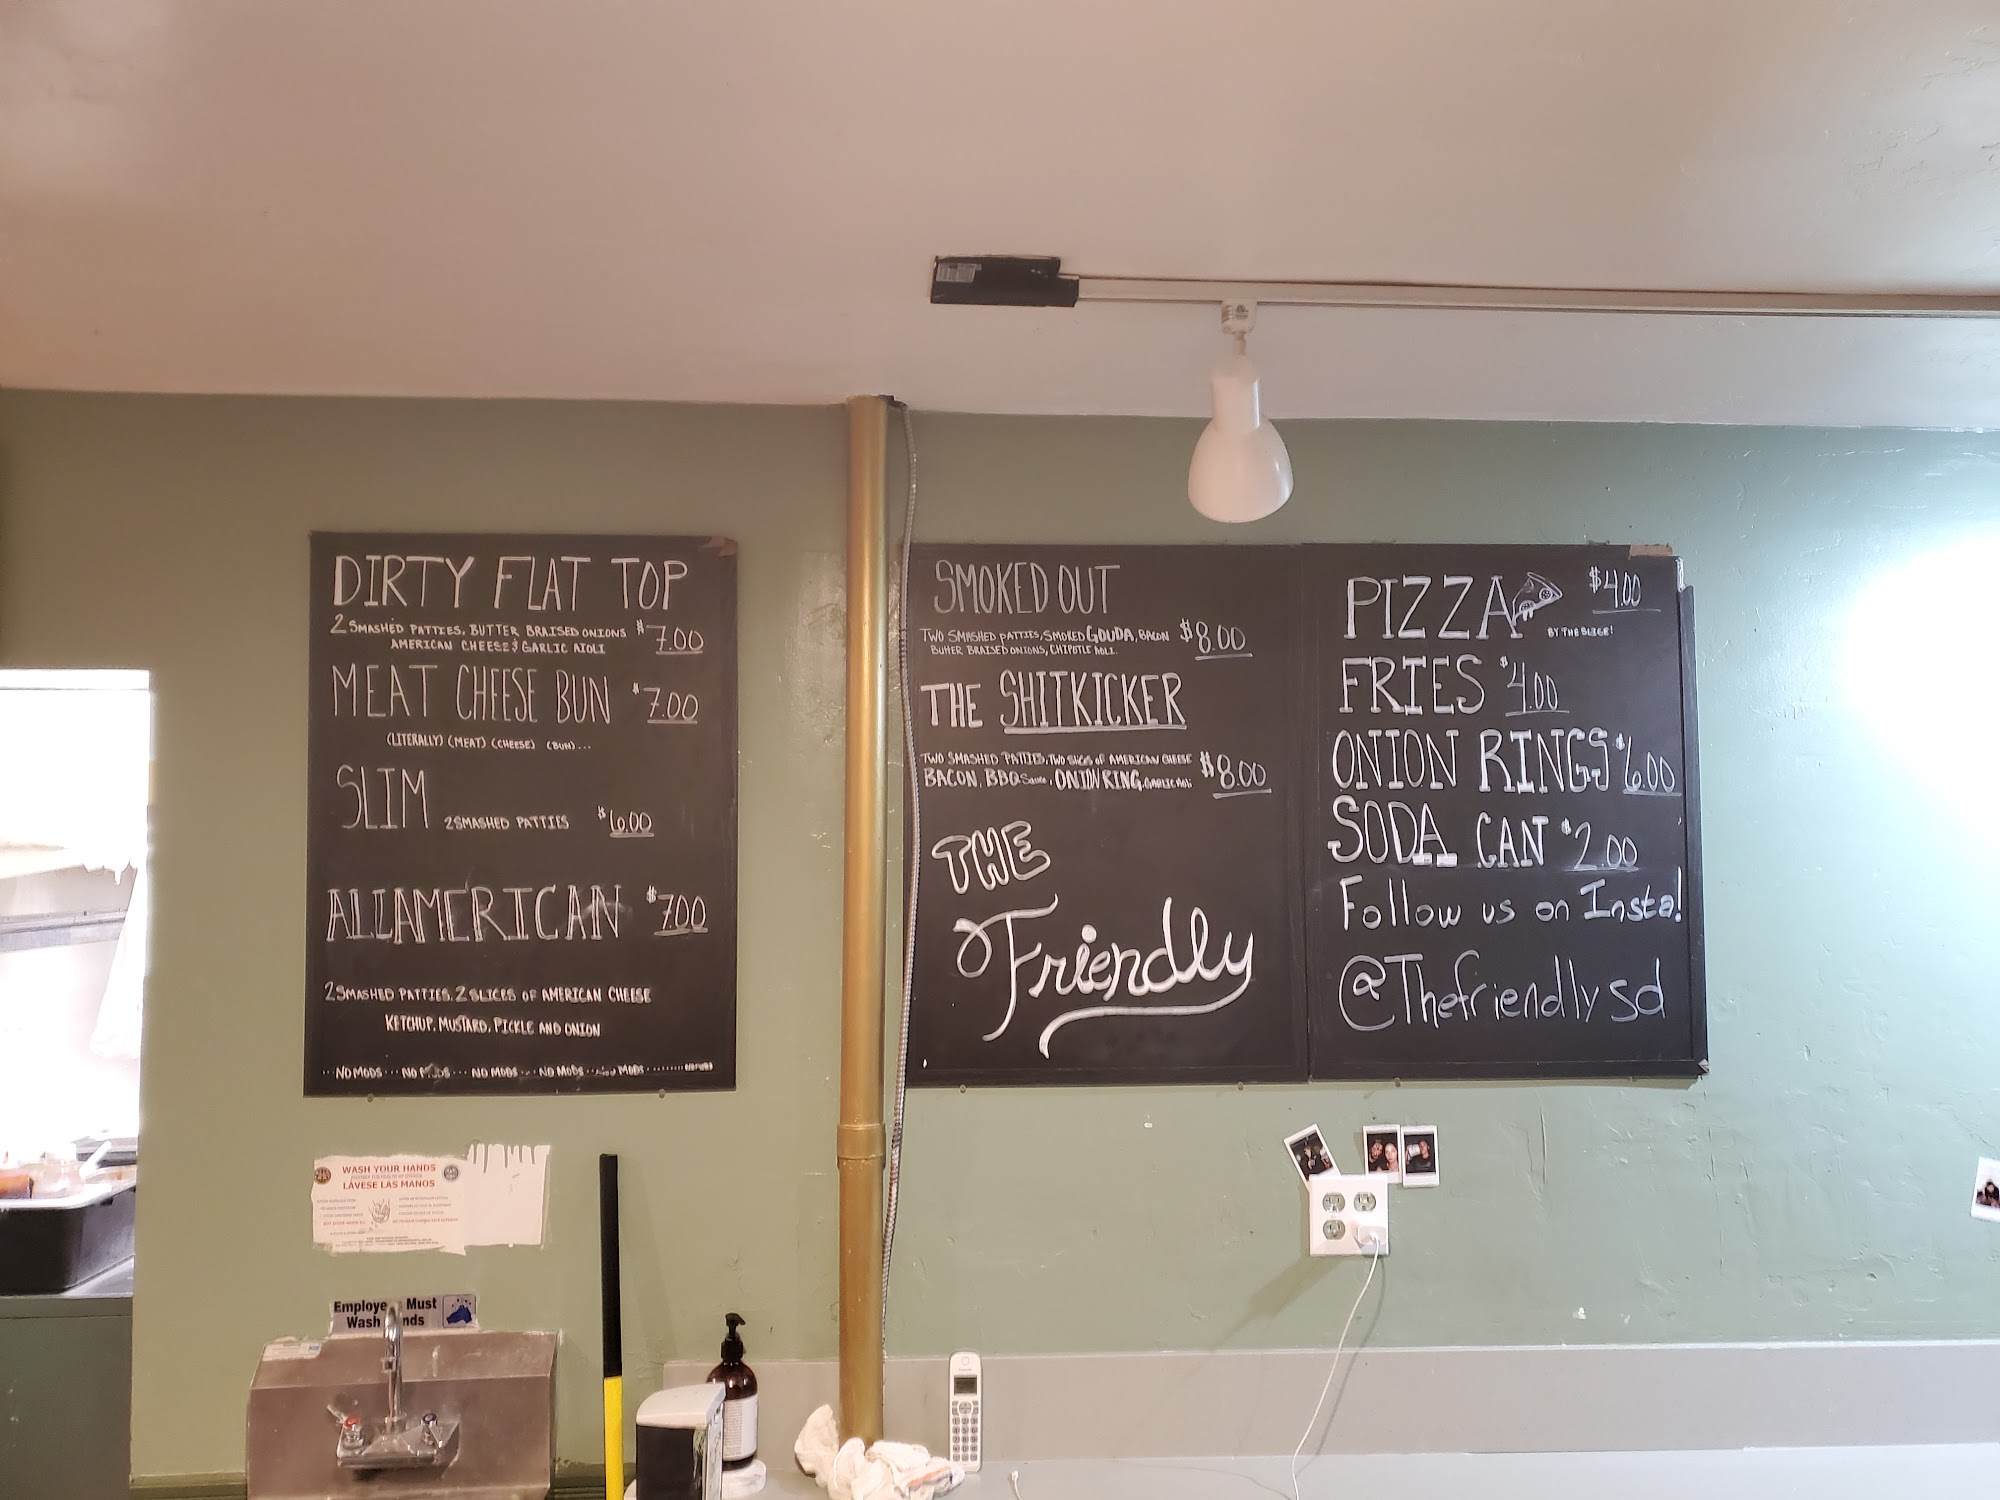 DIRTY FLAT TOP
2 SMASHED PATTIES, BUTTER BRAISED ONIONS $7.00
AMERICAN CHEESE & GARLIC AIOLI
MEAT CHEESE BUN $7.00
(LITERALLY) (MEAT) (CHEESE) (BUN)...
SLIM 2 SMASHED PATTIES $6.00
ALLAMERICAN $7.00
2 SMASHED PATTIES, 2 SLICES OF AMERICAN CHEESE
KETCHUP, MUSTARD, PICKLE AND ONION
...NO MODS...NO MODS...NO MODS...NO MODS...NO MODS........
SMOKED OUT
TWO SMASHED PATTIES, SMOKED GOUDA, BACON $8.00
BUTTER BRAISED ONIONS, CHIPOTLE AIOLI.
THE SHITKICKER
TWO SMASHED PATTIES, TWO SLICES OF AMERICAN CHEESE $8.00
BACON, BBQ Sauce, ONION RING, GARLIC AIOLI
THE
Friendly
PIZZA $4.00
BY THE SLICE!
FRIES $4.00
ONION RINGS $6.00
SODA CAN $2.00
Follow us on Insta!
@Thefriendlysd
WASH YOUR HANDS
LÁVESE LAS MANOS
Employe Must
Wash nds